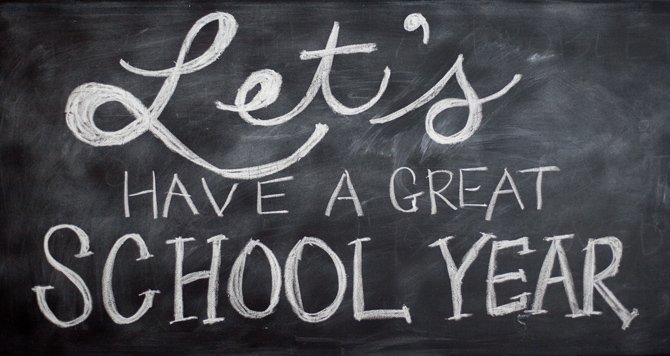 Let's
HAVE A GREAT
SCHOOL YEAR